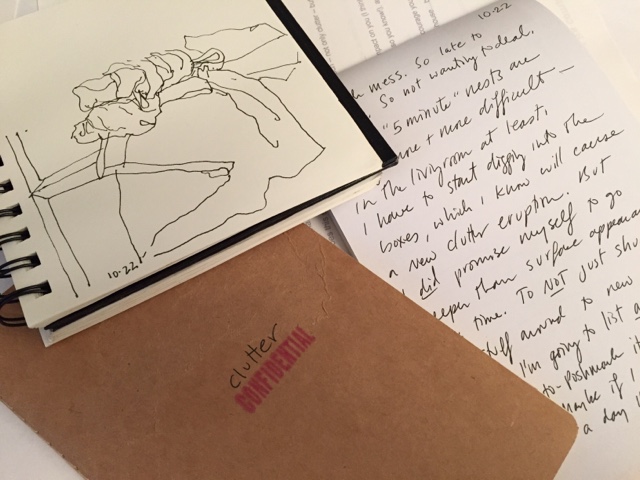 10-22
mess. So late to
So not wanting to deal.
"5 minute" nests are
more + more difficult –
in the livingroom at least,
I have to start digging into the
boxes, which I know will cause
a new clutter eruption. But
I did promise myself to go
deeper than surface appearance
time. To NOT just shu
stuff around to new
I'm going to list a
to-Poshmark it
Maybe if I
a day
10-22
clutter
CONFIDENTIAL